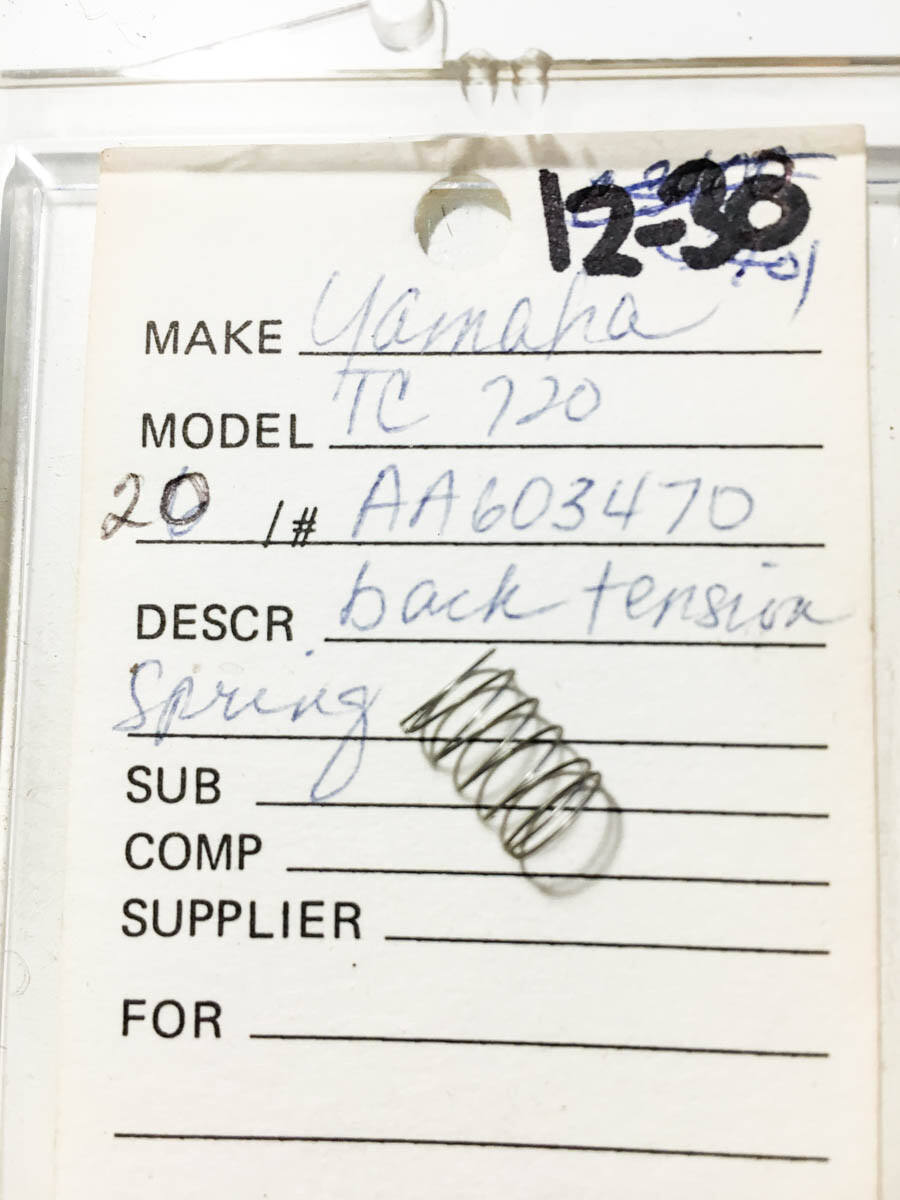 12-30
MAKE Yamaha
MODEL TC 720
20 /# AA603470
DESCR back tension
spring
SUB
COMP
SUPPLIER
FOR